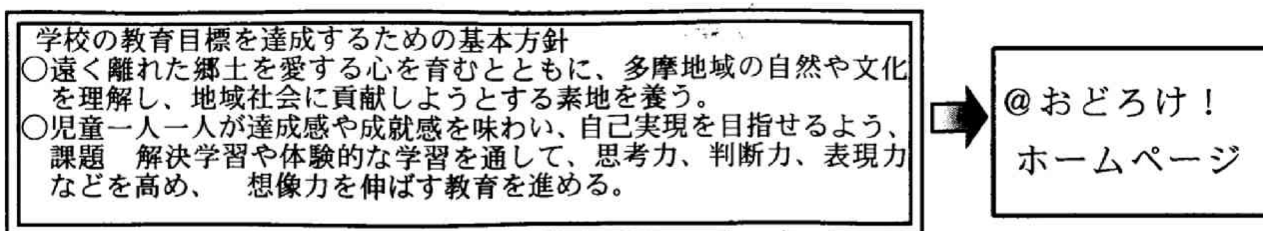 学校の教育目標を達成するための基本方針
○遠く離れた郷土を愛する心を育むとともに、多摩地域の自然や文化
を理解し、地域社会に貢献しようとする素地を養う。
○児童一人一人が達成感や成就感を味わい、自己実現を目指せるよう、
課題　解決学習や体験的な学習を通して、思考力、判断力、表現力
などを高め、　想像力を伸ばす教育を進める。
@おどろけ！
ホームページ